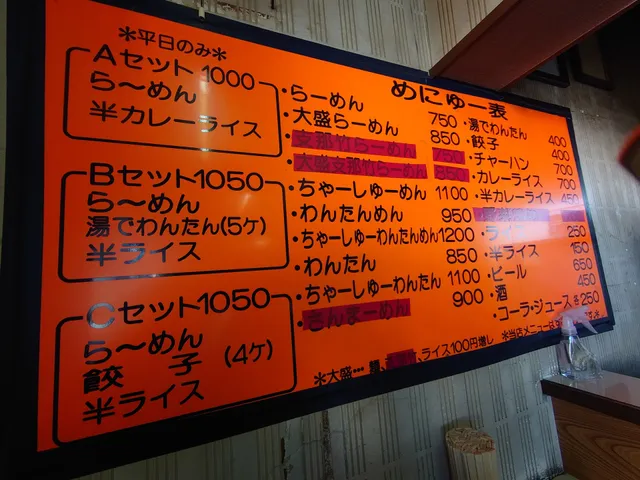 めにゅー表
＊平日のみ＊
Aセット 1000
ら〜めん
半カレーライス
Bセット1050
ら〜めん
湯でわんたん(5ケ)
半ライス
Cセット1050
ら〜めん
餃子 (4ケ)
半ライス
・らーめん 750
・大盛らーめん 850
・支那竹らーめん 750
・大盛支那竹らーめん 850
・ちゃーしゅーめん 1100
・わんたんめん 950
・ちゃーしゅーわんたんめん1200
・わんたん 850
・ちゃーしゅーわんたん 1100
・さんまーめん 900
・湯でわんたん 400
・餃子 400
・チャーハン 700
・カレーライス 700
・半カレーライス 450
・ライス 250
・半ライス 150
・ビール 650
・酒 450
・コーラ・ジュース各250
＊大盛… 麺、ライス100円増し
＊当店メニューは